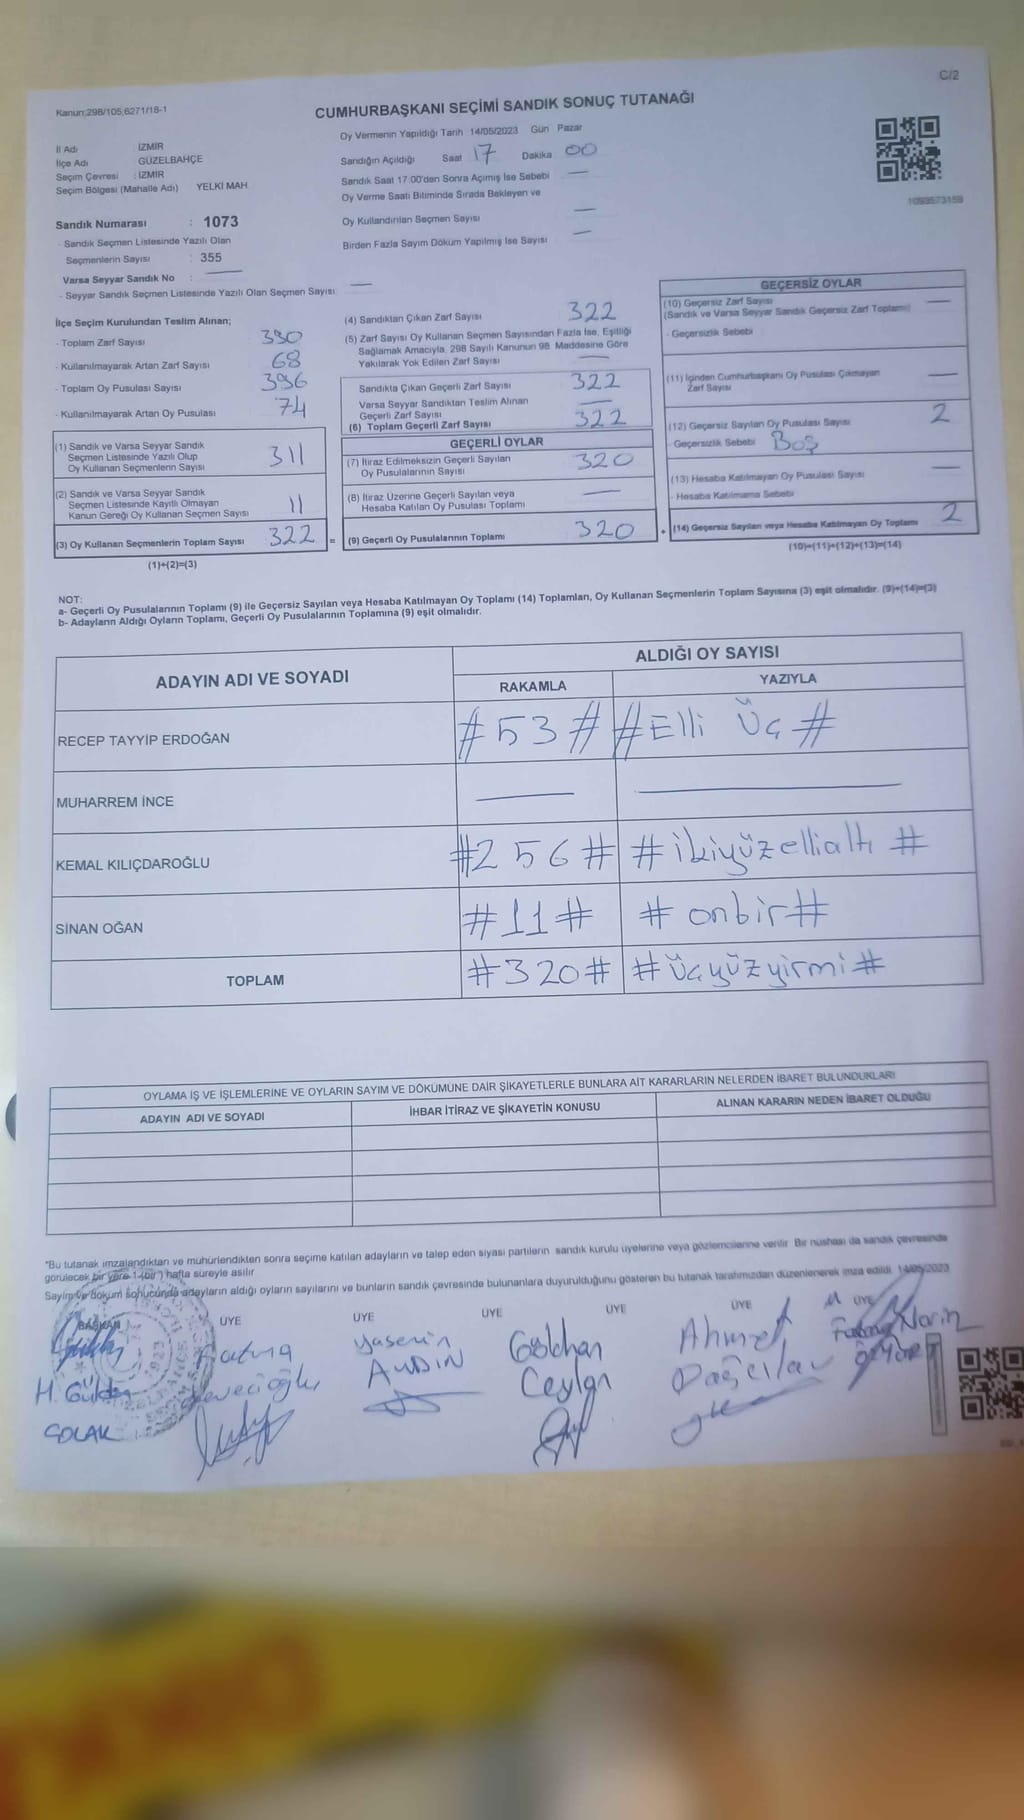 C/2
Kanun:298/105;6271/18-1
CUMHURBAŞKANI SEÇİMİ SANDIK SONUÇ TUTANAĞI
İl Adı : İZMİR
İlçe Adı : GÜZELBAHÇE
Seçim Çevresi : İZMİR
Seçim Bölgesi (Mahalle Adı) YELKİ MAH.
Sandık Numarası : 1073
- Sandık Seçmen Listesinde Yazılı Olan
Seçmenlerin Sayısı : 355
Varsa Seyyar Sandık No : —
- Seyyar Sandık Seçmen Listesinde Yazılı Olan Seçmen Sayısı: —
Oy Vermenin Yapıldığı Tarih 14/05/2023 Gün Pazar
Sandığın Açıldığı Saat 17 Dakika 00
Sandık Saat 17:00'den Sonra Açımış İse Sebebi —
Oy Verme Saati Bitiminde Sırada Bekleyen ve
Oy Kullandırılan Seçmen Sayısı —
Birden Fazla Sayım Döküm Yapılmış İse Sayısı —
1093573159
İlçe Seçim Kurulundan Teslim Alınan;
- Toplam Zarf Sayısı 390
- Kullanılmayarak Artan Zarf Sayısı 68
- Toplam Oy Pusulası Sayısı 396
- Kullanılmayarak Artan Oy Pusulası 74
(1) Sandık ve Varsa Seyyar Sandık
Seçmen Listesinde Yazılı Olup
Oy Kullanan Seçmenlerin Sayısı 311
(2) Sandık ve Varsa Seyyar Sandık
Seçmen Listesinde Kayıtlı Olmayan
Kanun Gereği Oy Kullanan Seçmen Sayısı 11
(3) Oy Kullanan Seçmenlerin Toplam Sayısı 322 =
(1)+(2)=(3)
(4) Sandıktan Çıkan Zarf Sayısı 322
(5) Zarf Sayısı Oy Kullanan Seçmen Sayısından Fazla İse, Eşitliği
Sağlamak Amacıyla, 298 Sayılı Kanunun 98. Maddesine Göre
Yakılarak Yok Edilen Zarf Sayısı —
Sandıkta Çıkan Geçerli Zarf Sayısı 322
Varsa Seyyar Sandıktan Teslim Alınan
Geçerli Zarf Sayısı —
(6) Toplam Geçerli Zarf Sayısı 322
GEÇERLİ OYLAR
(7) İtiraz Edilmeksizin Geçerli Sayılan
Oy Pusulalarının Sayısı 320
(8) İtiraz Üzerine Geçerli Sayılan veya
Hesaba Katılan Oy Pusulası Toplamı —
(9) Geçerli Oy Pusulalarının Toplamı 320 +
GEÇERSİZ OYLAR
(10) Geçersiz Zarf Sayısı —
(Sandık ve Varsa Seyyar Sandık Geçersiz Zarf Toplamı)
- Geçersizlik Sebebi
(11) İçinden Cumhurbaşkanı Oy Pusulası Çıkmayan
Zarf Sayısı —
(12) Geçersiz Sayılan Oy Pusulası Sayısı 2
- Geçersizlik Sebebi Boş
(13) Hesaba Katılmayan Oy Pusulası Sayısı —
- Hesaba Katılmama Sebebi
(14) Geçersiz Sayılan veya Hesaba Katılmayan Oy Toplamı 2
(10)+(11)+(12)+(13)=(14)
NOT:
a- Geçerli Oy Pusulalarının Toplamı (9) ile Geçersiz Sayılan veya Hesaba Katılmayan Oy Toplamı (14) Toplamları, Oy Kullanan Seçmenlerin Toplam Sayısına (3) eşit olmalıdır. (9)+(14)=(3)
b- Adayların Aldığı Oyların Toplamı, Geçerli Oy Pusulalarının Toplamına (9) eşit olmalıdır.
ADAYIN ADI VE SOYADI ALDIĞI OY SAYISI
RAKAMLA YAZIYLA
RECEP TAYYİP ERDOĞAN #53# #Elli Üç#
MUHARREM İNCE — —
KEMAL KILIÇDAROĞLU #256# #ikiyüzellialtı#
SİNAN OĞAN #11# #onbir#
TOPLAM #320# #Üçyüzyirmi#
OYLAMA İŞ VE İŞLEMLERİNE VE OYLARIN SAYIM VE DÖKÜMÜNE DAİR ŞİKAYETLERLE BUNLARA AİT KARARLARIN NELERDEN İBARET BULUNDUKLARI
ADAYIN ADI VE SOYADI İHBAR İTİRAZ VE ŞİKAYETİN KONUSU ALINAN KARARIN NEDEN İBARET OLDUĞU
*Bu tutanak imzalandıktan ve mühürlendikten sonra seçime katılan adayların ve talep eden siyasi partilerin sandık kurulu üyelerine veya gözlemcilerine verilir. Bir nüshası da sandık çevresinde
görülecek bir yere 1 (bir) hafta süreyle asılır
Sayım ve döküm sonucunda adayların aldığı oyların sayılarını ve bunların sandık çevresinde bulunanlara duyurulduğunu gösteren bu tutanak tarafımızdan düzenlenerek imza edildi. 14/05/2023
BAŞKAN ÜYE ÜYE ÜYE ÜYE ÜYE ÜYE
H. Gülden
SOLAK
Fatma
Yasemin
AYDIN
Gökhan
Ceylan
Ahmet
Dağcılar
Narin